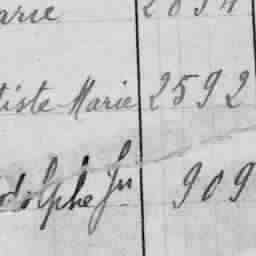 arie
tiste Marie 2592
dolphe Jn 909